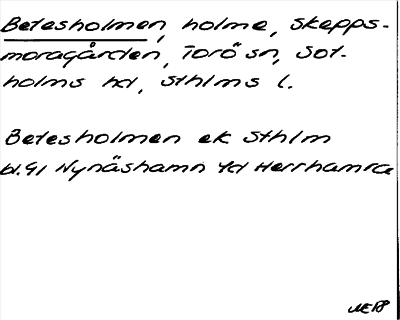 Betesholmen, holme, Skepps-
moragården, Torö sn, Sot-
holms hd, Sthlms l.
Betesholmen ek Sthlm
bl. 91 Nynäshamn Yd Herrhamra